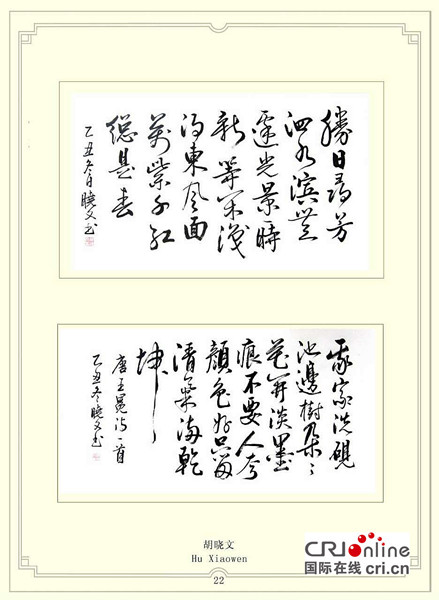 勝日尋芳
泗水滨無
邊光景一時
新等闲識
得東风面
萬紫千紅
總是春
乙丑冬日曉文书
我家洗硯
池邊樹朵々
花开淡墨
痕不要人夸
顏色好只留
清氣滿乾
坤
唐王冕诗一首
乙丑冬曉文书
胡晓文
Hu Xiaowen
22
CRIonline
国际在线 cri.cn